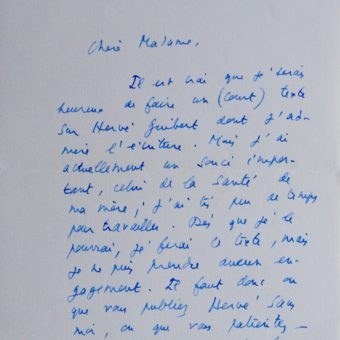 Chère Madame,
Il est vrai que je serais
heureux de faire un (court) texte
sur Hervé Guibert dont j'ad-
mire l'écriture. Mais j'ai
actuellement un souci impor-
tant, celui de la santé de
ma mère ; j'ai très peu de temps
pour travailler. Dès que je le
pourrai, je ferai ce texte, mais
je ne puis prendre aucun en-
gagement. Il faut donc ou
que vous publiiez Hervé sans
moi, ou que vous patientiez —